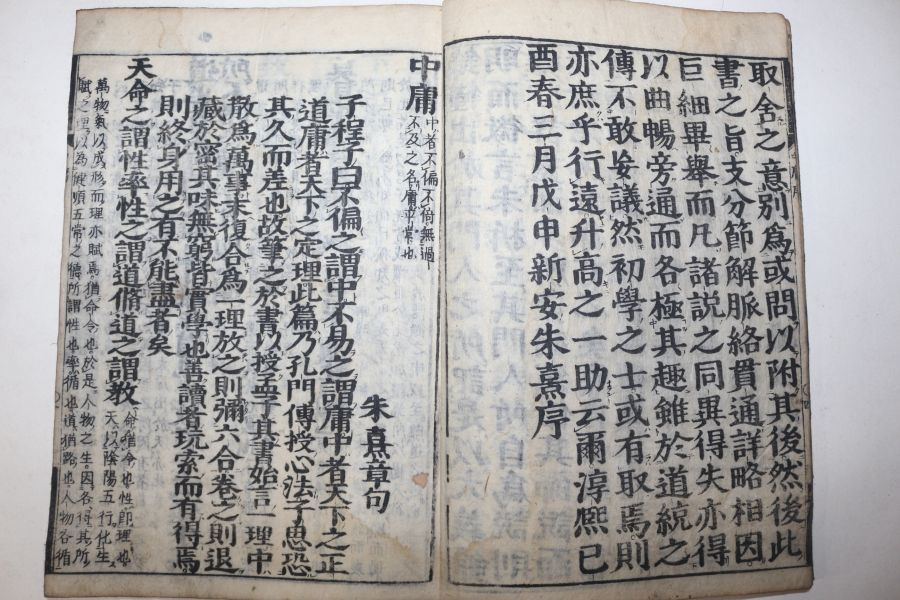 取舍之意別為或問以附其後然後此
書之旨支分節解脈絡貫通詳略相因
巨細畢舉而凡諸說之同異得失亦得
以曲暢旁通而各極其趣雖於道統之
傳不敢妄議然初學之士或有取焉則
亦庶乎行遠升高之一助云爾淳熙己
酉春三月戊申新安朱熹序
中庸
中者不偏不倚無過
不及之名庸平常也
朱熹章句
子程子曰不偏之謂中不易之謂庸中者天下之正
道庸者天下之定理此篇乃孔門傳授心法子思恐
其久而差也故筆之於書以授孟子其書始言一理中
散為萬事末復合為一理放之則彌六合卷之則退
藏於密其味無窮皆實學也善讀者玩索而有得焉
則終身用之有不能盡者矣
天命之謂性率性之謂道脩道之謂教
命猶令也性即理也
天以陰陽五行化生
萬物氣以成形而理亦賦焉猶命令也於是人物之生因各得其所
賦之理以為健順五常之德所謂性也率循也道猶路也人物各循